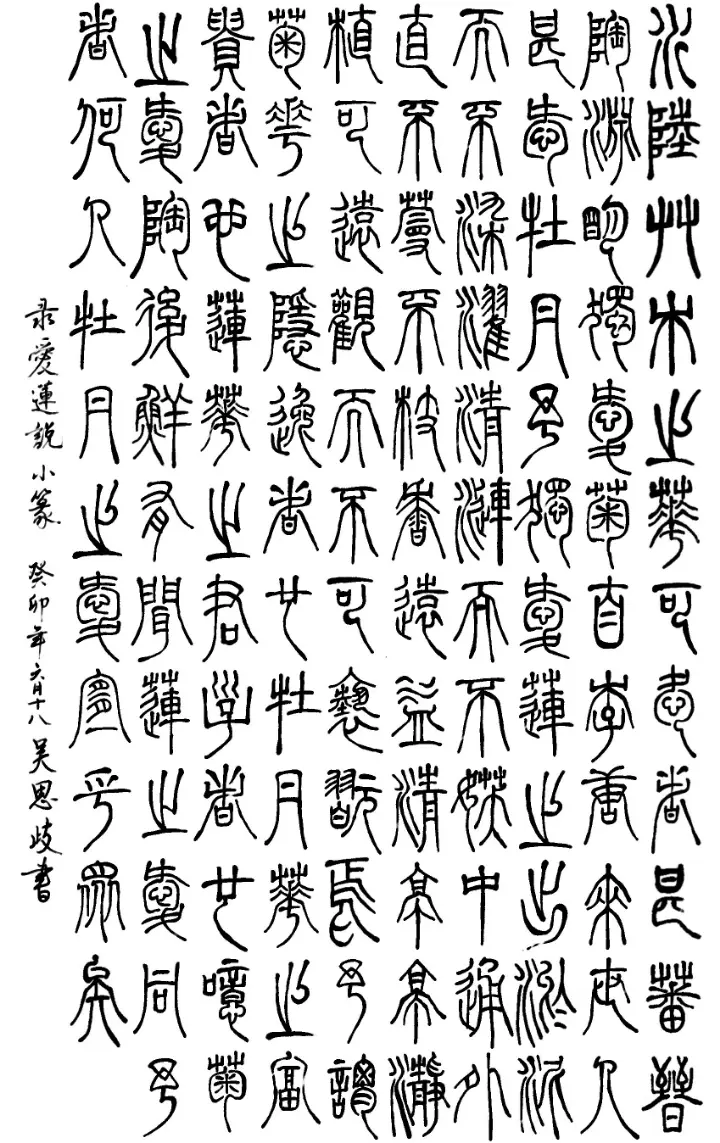 水陸艸木之華可愛者甚蕃晉
陶淵明獨愛菊自李唐來世人
甚愛牡丹予獨愛蓮之出淤泥
而不染濯清漣而不妖中通外
直不蔓不枝香遠益清亭亭瀞
植可遠觀而不可褻翫焉予謂
菊華之隱逸者也牡丹華之富
貴者也蓮華之君子者也噫菊
之愛陶後鮮有聞蓮之愛同予
者何人牡丹之愛宜乎眾矣
录愛蓮說小篆 癸卯年六月十八吴思歧書